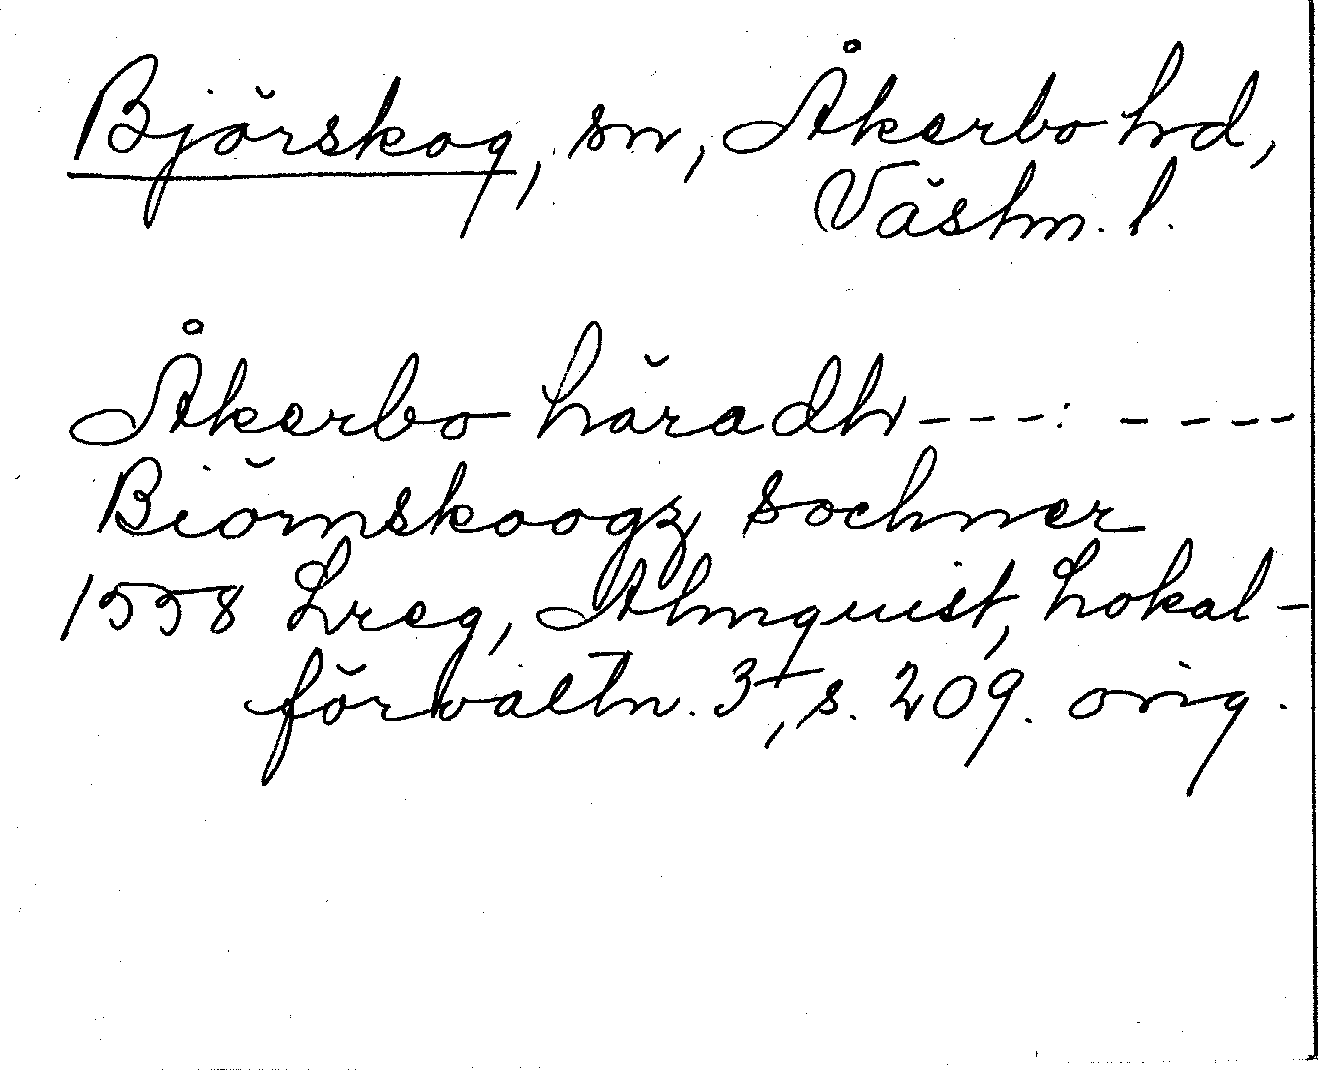 Björskog, sn, Åkerbo hd,
Västm. l.
Åkerbo häradh ---: ----
Biörnskoogz sochner
1558 Lreg, Almquist, Lokal-
förvaltn. 3, s. 209. orig.